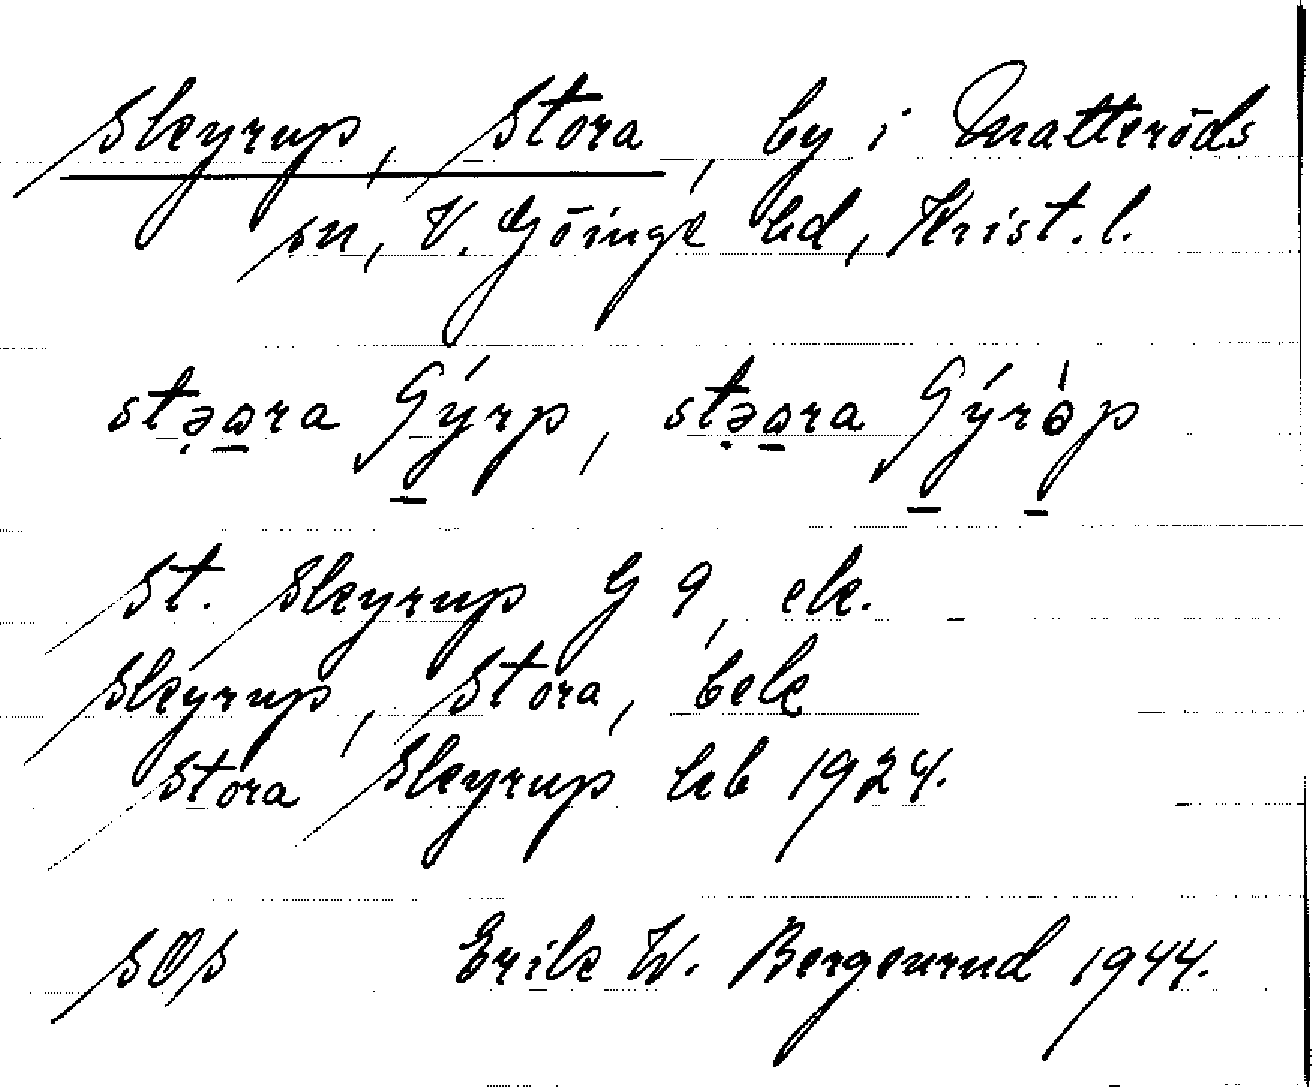 Skyrup, Stora, by i Matteröds
sn, V. Göinge hd, Krist. l.
stə̣a̱ra G̱ýrp, stə̣a̱ra G̱ýrɵ̀p̱
St. Skyrup G 9, ek.
Skyrup, Stora, bek
Stora Skyrup hb 1924.
SOS Erik W. Bergenrud 1944.